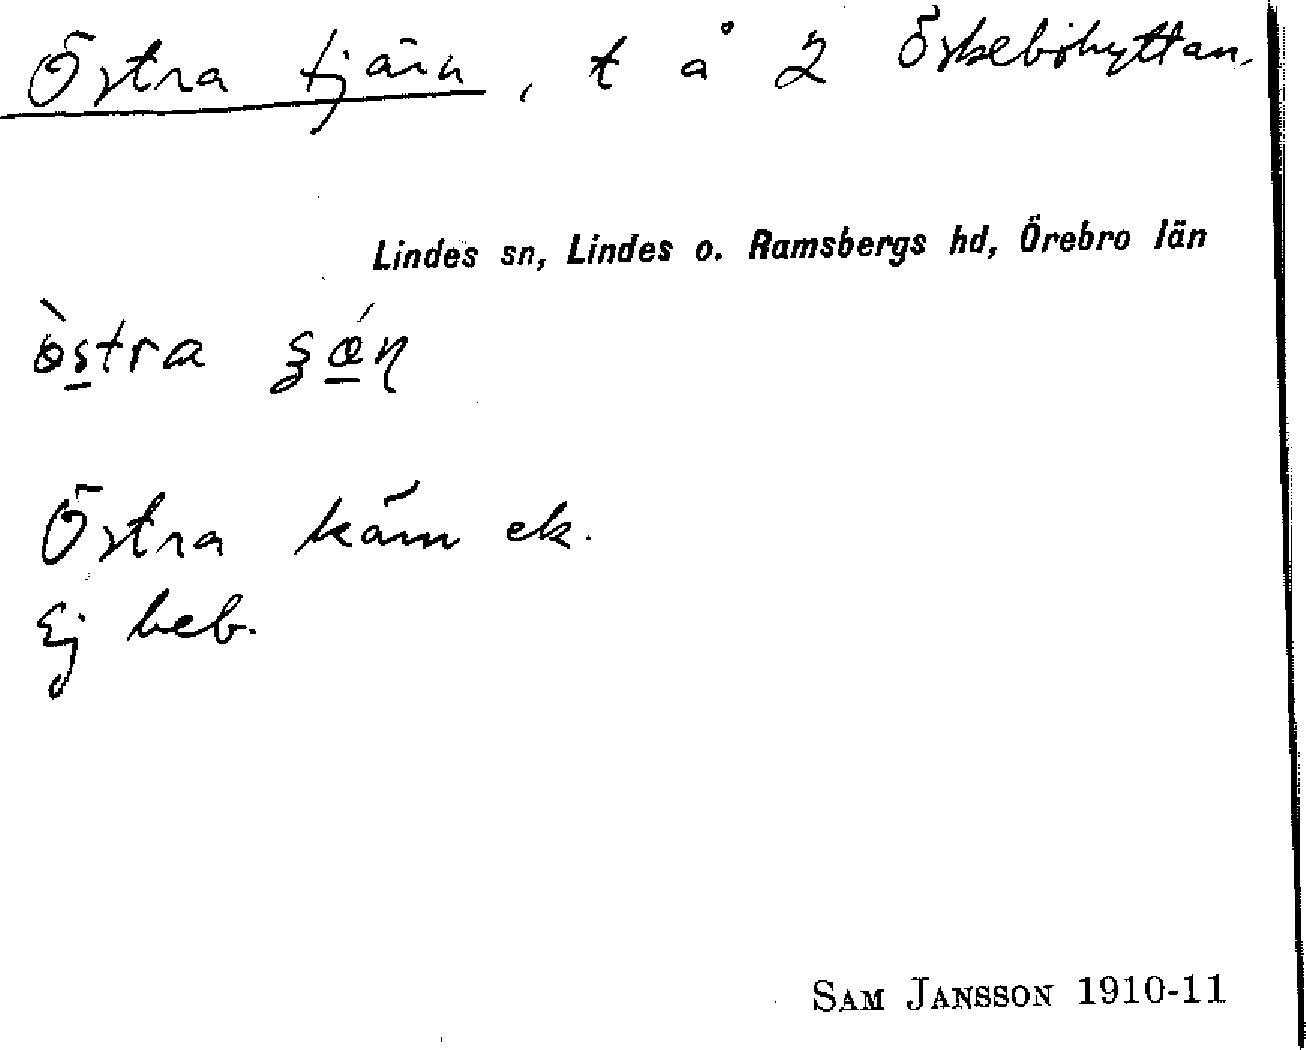 Östra tjärn, t å 2 Öskebohyttan.
Lindes sn, Lindes o. Ramsbergs hd, Örebro län
östra
Östra kärn ek.
Ej beb.
SAM JANSSON 1910-11